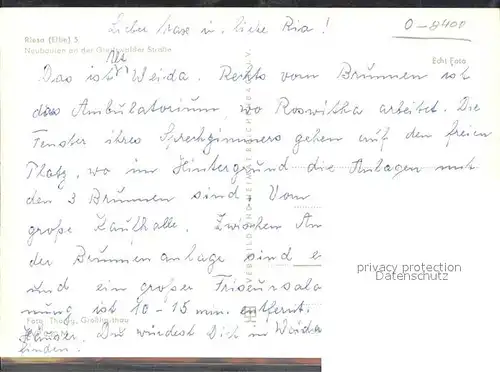 Lieber Max u. liebe Ria!
0-8400
Riesa (Elbe) 5
Neubauten an der Greifswalder Straße
Echt Foto
Das ist Weida. Rechts vom Brunnen ist
das Ambulatorium, wo Roswitha arbeitet. Die
Fenster ihres Sprechzimmers gehen auf den freien
Platz, wo im Hintergrund die Anlagen mit
den 3 Brunnen sind. Vorn
große Kaufhalle. Zwischen An
der Brunnenanlage sind e
und ein großer Friseursalo
nung ist 10-15 min. entfernt.
Häuser. Du würdest Dich in Weida
finden.
privacy protection
Datenschutz